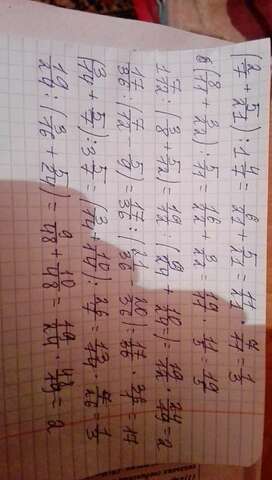 (2/7 + 5/21) : 1 4/7 = 6/21 + 5/21 = 11/21 · 7/11 = 1/3
б (8/11 + 3/22) : 5/11 = 16/22 + 3/22 = 19/22 · 11/5 = 19/10
1 7/12 : (3/8 + 5/12) = 19/12 : (9/24 + 10/24) = 19/12 · 24/19 = 2
17/36 : (7/12 - 5/9) = 17/36 : (21/36 - 20/36) = 17/36 · 36/1 = 17
(3/14 + 5/7) : 3 5/7 = (3/14 + 10/14) : 26/7 = 13/14 · 7/26 =
19/24 : (3/16 + 5/24) = 9/48 + 10/48 = 19/24 · 48/19 = 2